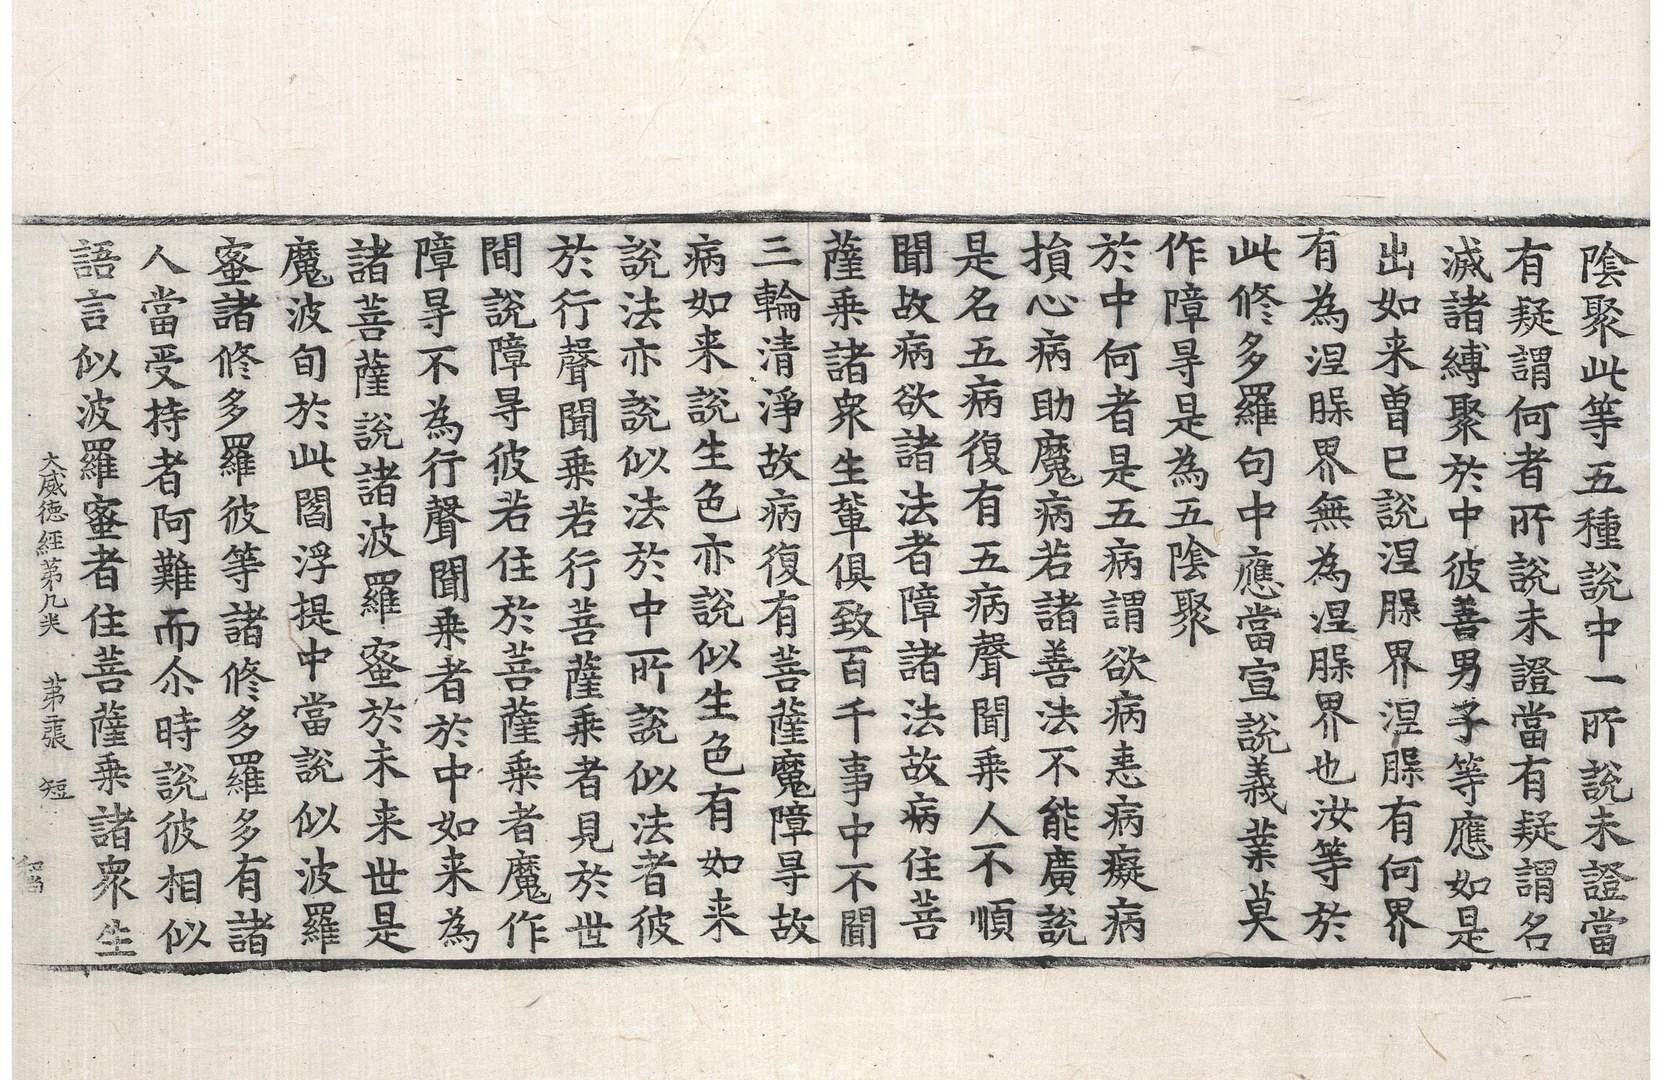 陰聚此等五種說中一所說未證當
有疑謂何者所說未證當有疑謂名
滅諸縛聚於中彼善男子等應如是
出如来曽已說涅槃界涅槃有何界
有為涅槃界無為涅槃界也汝等於
此修多羅句中應當宣說義業莫
作障㝵是為五陰聚
於中何者是五病謂欲病恚病癡病
損心病助魔病若諸善法不能廣說
是名五病復有五病聲聞乗人不順
聞故病欲諸法者障諸法故病住菩
薩乗諸衆生輩俱致百千事中不聞
三輪清淨故病復有菩薩魔障㝵故
病如来說生色亦說似生色有如来
說法亦說似法於中所說似法者彼
於行聲聞乗若行菩薩乗者見於世
間說障㝵彼若住於菩薩乗者魔作
障㝵不為行聲聞乗者於中如来為
諸菩薩說諸波羅蜜於未来世是
魔波旬於此閻浮提中當說似波羅
蜜諸修多羅彼等諸修多羅多有諸
人當受持者阿難而尒時說彼相似
語言似波羅蜜者住菩薩乗諸衆生
大威徳經苐九 苐張 短